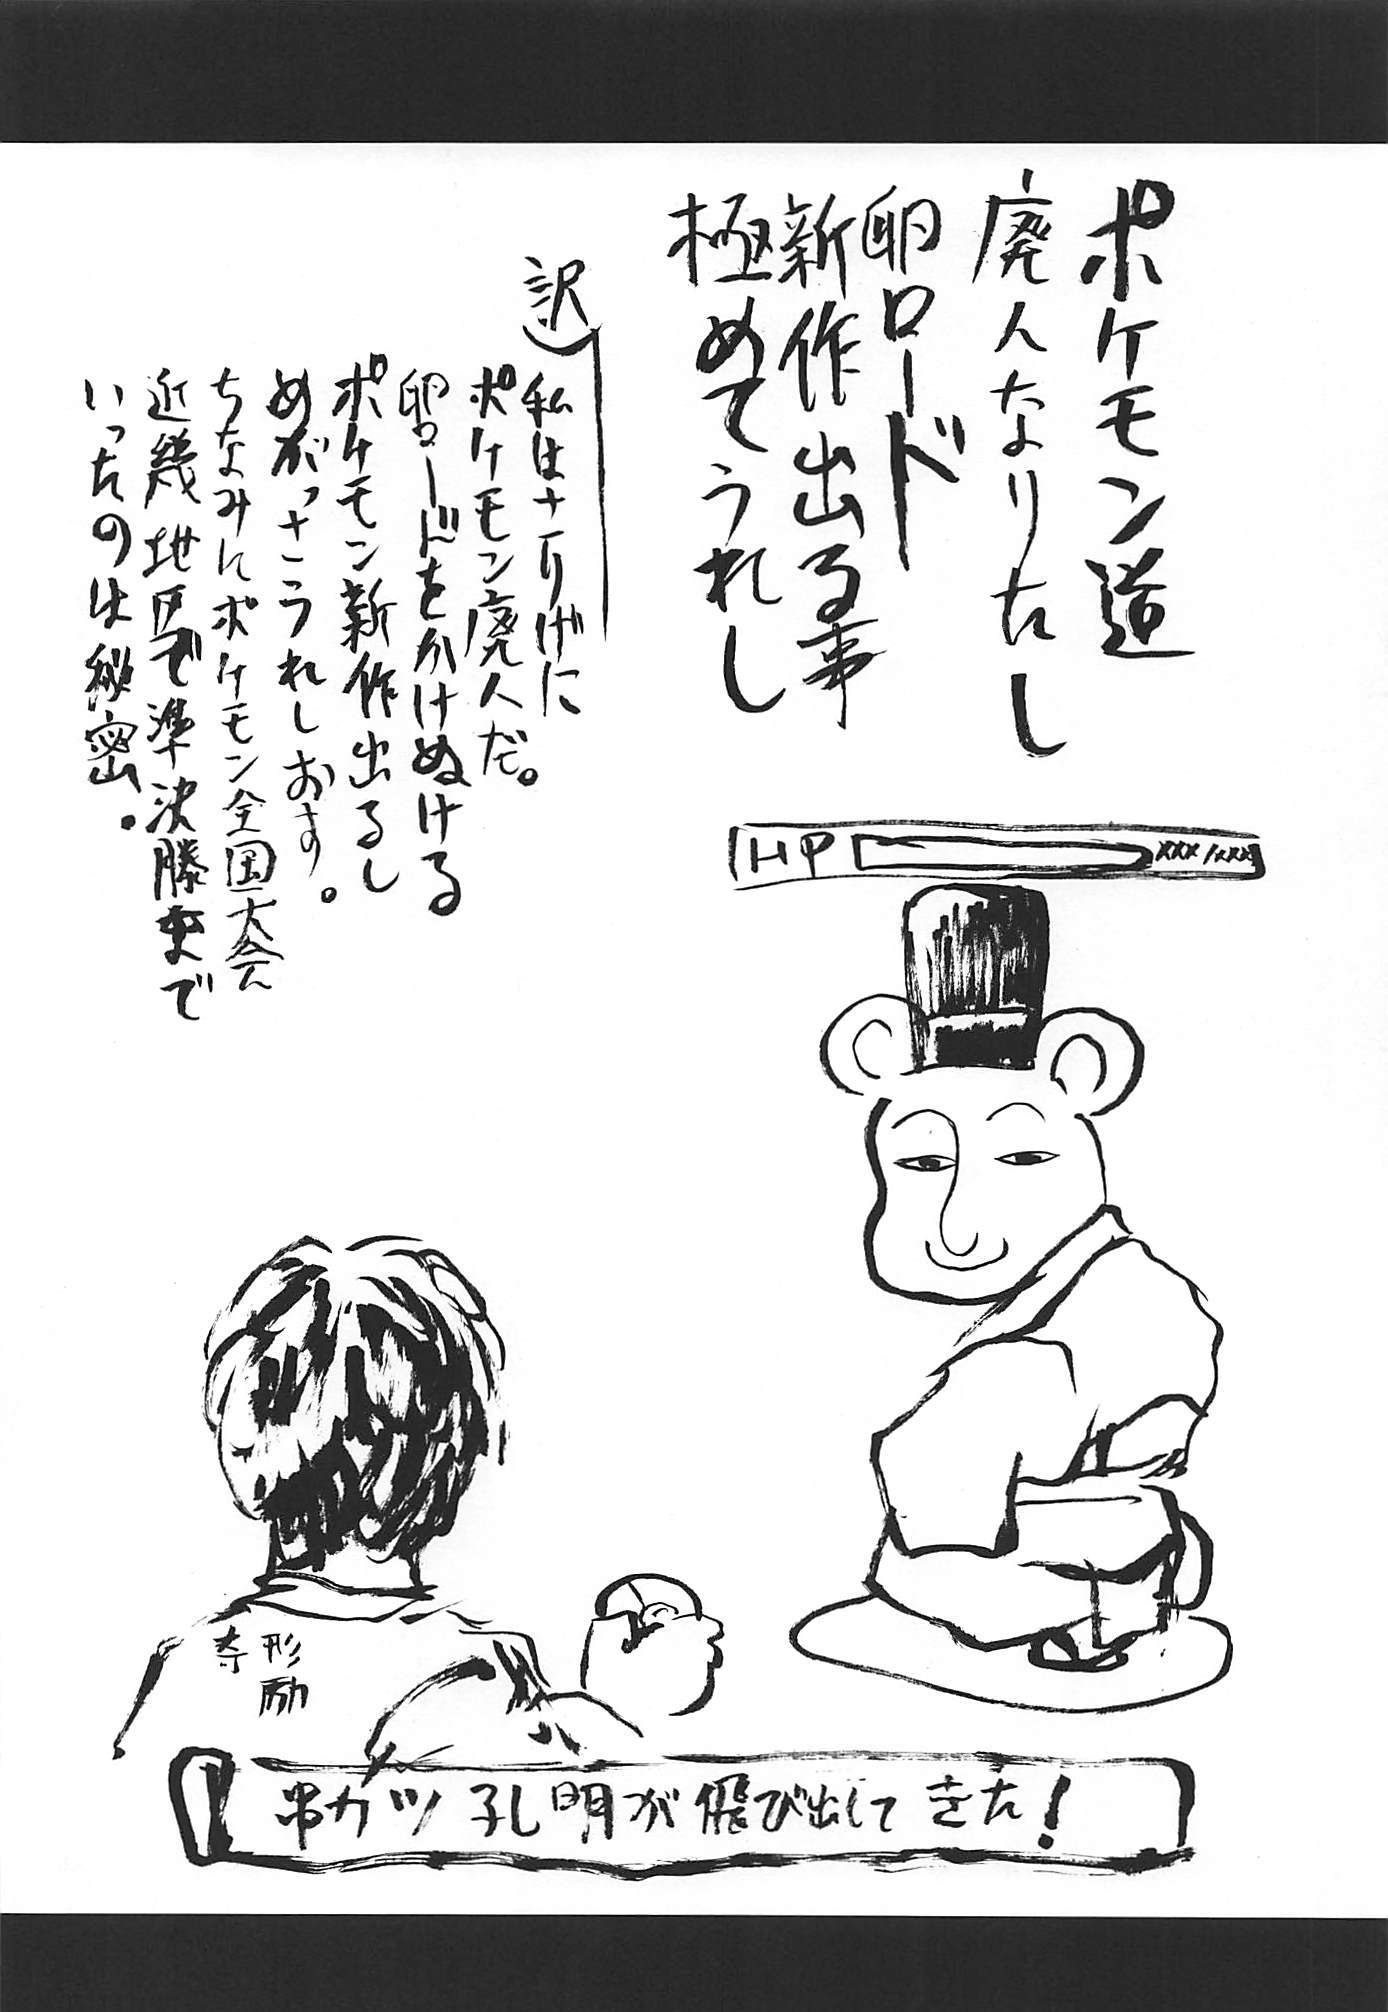 ポケモン道
廃人なりたし
卵ロード
新作出る事
極めてうれし
訳
私はさりげに
ポケモン廃人だ。
卵ロードをかけぬける
ポケモン新作出るし
めがっさうれしおす。
ちなみにポケモン全国大会
近畿地区で準決勝まで
いったのは秘密。
HP xxx/xxx
串カツ孔明が飛び出してきた!